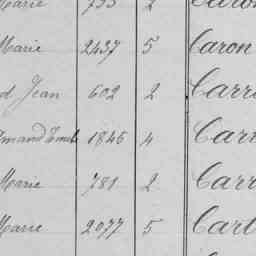 Marie 755 2 Caron
Marie 2437 5 Caron
Jean 602 2 Carr
1845 4 Carr
Marie 781 2 Carr
Marie 2077 5 Cart